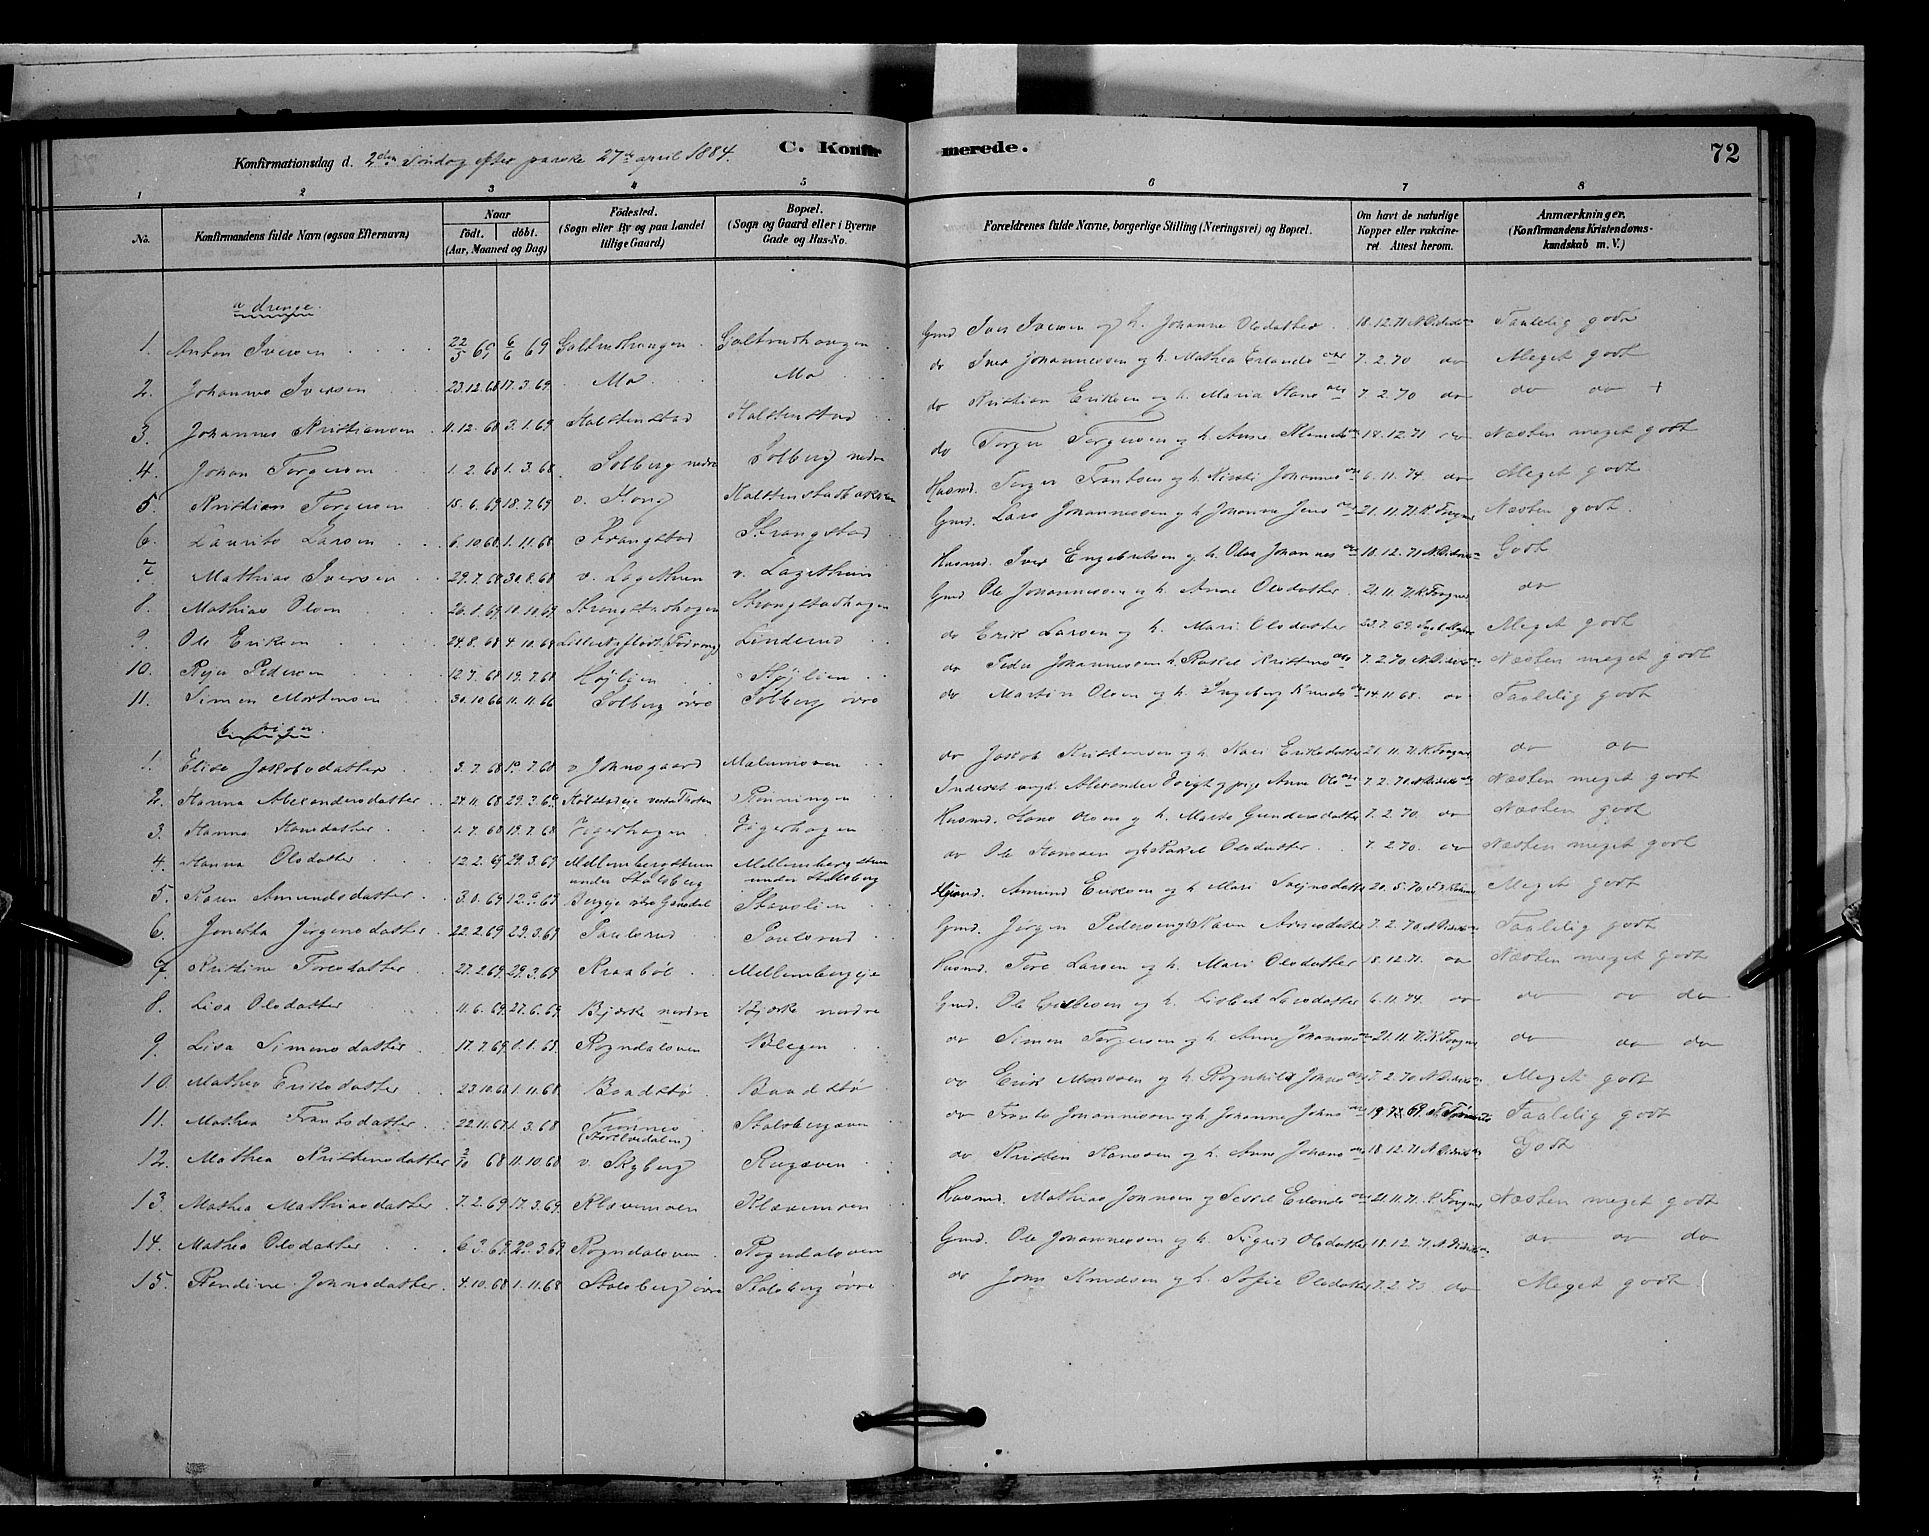 C. Konfirmerede.
72
Konfirmationsdag d. 2den Søndag efter paaske 27de april 1884.
1 2 3 4 5 6 7 8
No. Konfirmandens fulde Navn (ogsaa Efternavn) Naar født. døbt. (Aar, Maaned og Dag) Födested. (Sogn eller By og paa Landet tillige Gaard) Bopæl. (Sogn og Gaard eller i Byerne Gade og Hus-No. Forældrenes fulde Navne, borgerlige Stilling (Næringsvei) og Bopæl. Om havt de naturlige Kopper eller vakcineret. Attest herom. Anmærkninger. (Konfirmandens Kristendomskundskab m. V.)
a drenge.
1. Anton Iversen 22/5 69 6/6 69 Galtrudhaugen Galtrudhaugen Gmd. Iver Iversen og h. Johanne Olsdatter 18.12.71 Taalelig godt
2. Johannes Iversen 23.12.68 17.3.69 Mo Mo do Iver Johannessen og h. Mathea Erlands 7.2.70 do Meget godt
3. Johannes Kristiansen 11.12.68 3.1.69 Kalstenstad Kalstenstad do Kristian Eriksen og h. Maria Hans 7.2.70 do do do +
4. Johan Torgersen 1.2.68 1.3.68 Solberg nedre Solberg nedre do Torger Torgersen og h. Anne 18.12.71 do Næsten meget godt
5. Kristian Torgersen 15.6.69 18.7.69 v. Kong Kalstenstadbakken Husmd. Torger Frantsen og h. Kirsti Johannes 6.11.74 do Meget godt
6. Laurits Larsen 6.10.68 1.11.68 Strangstad Strangstad Gmd. Lars Johannessen og h. Johanna Jens 21.11.71 K. Fougner Næsten godt.
7. Mathias Iversen 29.7.68 30.8.68 v. Lagethun v. Lagethun Husmd. Iver Engebretsen og h. Olea Johannes 18.12.71 Godt
8. Mathias Olsen 26.8.69 10.10.69 Strangstadhagen Strangstadhagen Gmd. Ole Johannessen og h. Anne Olsdatter 21.11.71 K. Fougner do
9. Ole Eriksen 24.8.68 4.10.68 Linderud do Erik Larsen og h. Mari Olsdatter 23.7.69 Meget godt
10. Peder Pedersen 12.7.68 19.7.68 Højlien Højlien do Peder Johannessen h. Rakel Kristens 7.2.70 Næsten meget godt
11. Simen Mortensen 30.10.66 11.11.66 Solberg øvre Solberg øvre do Martin Olsen og h. Ingeborg Knuds 14.11.68 do Taalelig godt
b piger.
1. Elise Jakobsdatter 3.7.68 19.7.68 v Johnsgaard Malumsven do Jakob Kristensen og h. Kari Eriksdatter 21.11.71 K. Fougner do do
2. Hanna Alexandersdatter 24.11.68 29.3.69 vestre Thoten Rønningen Inderst Alexander og pige Anne Ols 7.2.70 Næsten meget godt
3. Hanna Hansdatter 1.7.68 19.7.68 Vigerhagen Vigerhagen Husmd. Hans Olsen og h. Marte Gundersdatter 7.2.70 do Næsten godt
4. Hanna Olsdatter 12.2.69 29.3.69 Mellembergstuen under Stalsberg Mellembergstuen under Stalsberg do Ole Hanssen og h. Rakel Olsdatter 7.2.70. do Næsten meget godt
5. Karen Amundsdatter Berge øvre Gausdal Stavslien Husmd. Amund Eriksen og h. Mari Svejnsdatter 20.5.70 Meget godt
6. Jonetta Jørgensdatter 22.2.69 29.3.69 Paulsrud Paulsrud Gmd. Jørgen Pedersen og Karen Arnesdatter 7.2.70 Taalelig godt
7. Kristine Toresdatter 27.2.69 29.3.69 Kraabøl Mellembergeje Husmd. Tore Larsen og h. Mari Olsdatter 18.12.71. do Næsten meget godt
8. Lisa Olsdatter 11.6.69 27.6.69 Bjørke nordre Bjørke nordre Gmd. Ole Eriksen og h. Lisbet Larsdatter 6.11.74 do do do do
9. Lisa Simensdatter Rogndalsven Blegen do Simen Torgersen og h. Anne Johannes 21.11.71 K. Fougner do do do
10. Mathea Eriksdatter 23.10.68 1.11.68 Baadstø Baadstø do Erik Monssen og h. Ragnhild Johns 7.2.70 Meget godt
11. Mathea Frantsdatter 22.11.67 1.3.68 Tronnes (Storelvedalen) Stalsbergsven do Frants Johannessen og h. Johanne Johns 69 Taalelig godt
12. Mathea Kristensdatter 2/10 68 11.10.68 v. Skyberg Rugsven do Kristen Hanssen og h. Anne Johans 18.12.71 Godt
13. Mathea Mathiasdatter 7.2.69 17.3.69 Klævemoen Klævemoen Husmd. Mathias Johnsen og Sessel Erlands 21.11.71. K. Fougner Næsten meget godt
14. Mathea Olsdatter 6.3.69 29.3.69 Rogndalsven Rogndalsven Gmd. Ole Johannessen og h. Sigrid Olsdatter 18.12.71 do do do
15. Randine Johnsdatter 4.10.68 1.11.68 Stalsberg øvre Stalsberg øvre do John Knudsen og h. Sofie Olsdatter 7.2.70 do Meget godt.